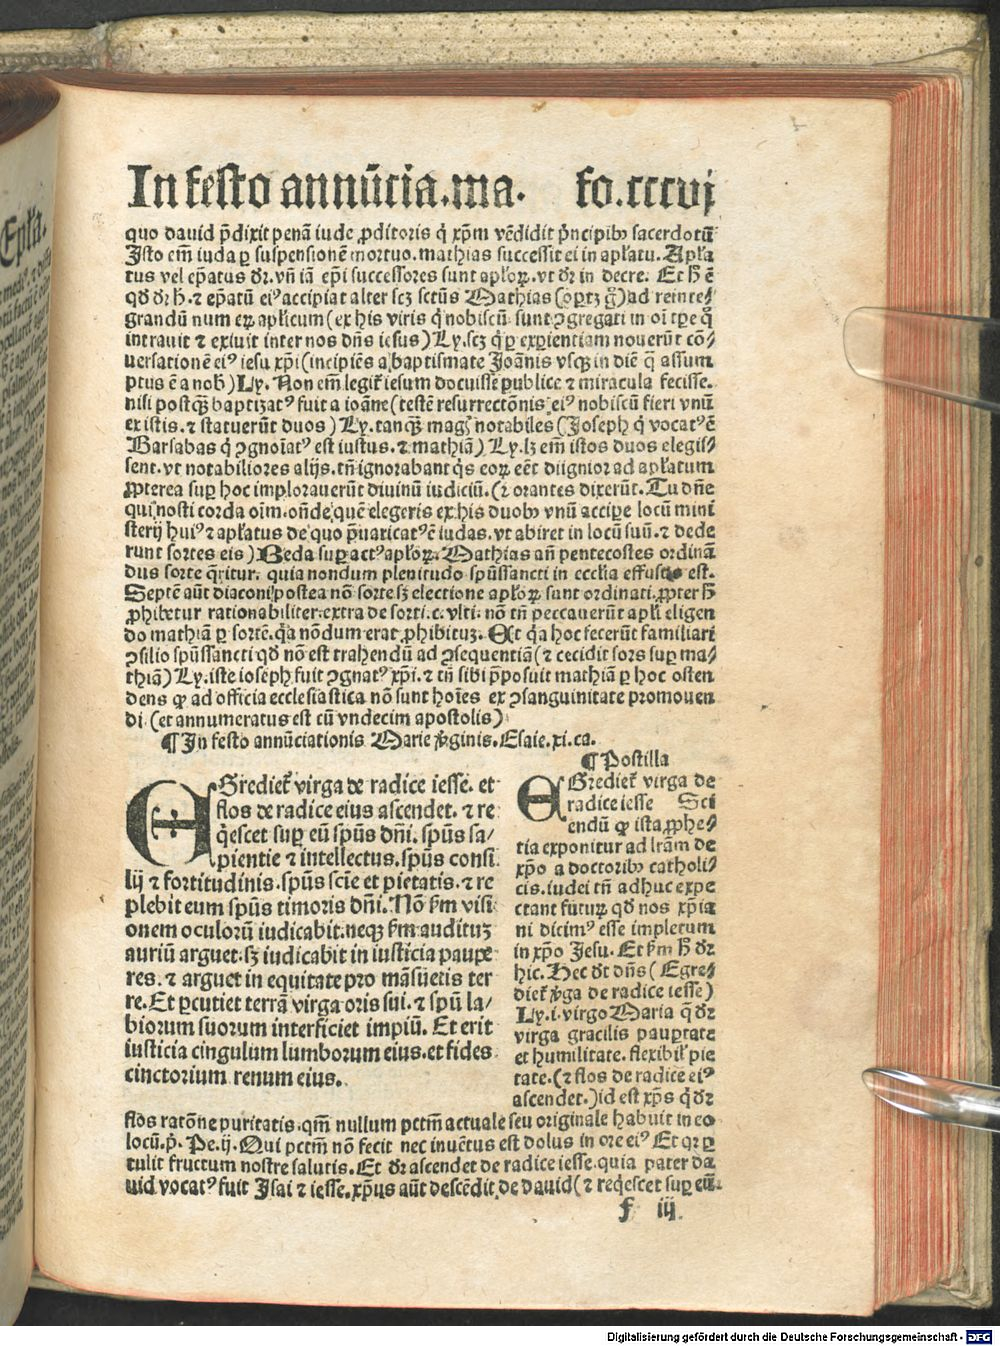 In festo annūcia.ma. fo.cccvj
quo dauid p̄dixit penā iude ꝓditoris q̇ xp̄m vēdidit p̄ncipibꝰ sacerdotū
Isto em̄ iuda ꝑ suspensionē mortuo.mathias successit ei in apl̄atu. Apl̄a
tus vel ep̄atus dr̄. vn̄ iā ep̄i successores sunt apl̄oꝝ.vt dr̄ in decre. Et h̄ ē
qd̄ dr̄ h̄.⁊ ep̄atū eiꝰ accipiat alter scꝫ sctūs Mathias (oꝑtꝫ g̊) ad reinte⸗
grandū num eꝝ apl̄icum (ex his viris q̇ nobiscū sunt ꝯgregati in oī tꝑe q̊
intrauit ⁊ exiuit inter nos dn̄s iesus) Ly.scꝫ q̇ ꝑ exꝑientiam nouerūt cō⸗
uersationē eiꝰ iesu xp̄i (incipiēs a baptismate Joānis vsqꝫ in diē q̄ assum
ptus ē a nob̄) Ly. Non em̄ legit᷑ iesum docuisse publice ⁊ miracula fecisse.
nisi postqꝫ baptizatꝰ fuit a ioāne (testē resurrectōnis eiꝰ nobiscū fieri vnū
ex istis.⁊ statuerūt duos) Ly. tanqꝫ magꝭ notabiles (Joseph q̇ vocatꝰ ē
Barsabas q̇ ꝯgnoīatꝰ est iustus.⁊ mathiā) Ly.lꝫ em̄ istos duos elegis⸗
sent.vt notabiliores alijs.tn̄ ignorabant q̇s eoꝝ eēt dignior ad apl̄atum
ꝓpterea suꝑ hoc implorauerūt diuinū iudiciū.(⁊ orantes dixerūt.Tu dn̄e
qui nosti corda oīm.ondē quē elegeris ex his duobꝰ vnū acciꝑe locū mini
sterij huiꝰ ⁊ apl̄atus de quo p̄uaricatꝰ ē iudas.vt abiret in locū suū.⁊ dede
runt sortes eis) Beda suꝑ actꝰ apl̄oꝝ. Mathias an̄ pentecostes ordinā
dus sorte q̄ritur. quia nondum plenitudo spūssancti in eccl̄ia effusa est.
Septē aūt diaconi postea nō sorte sꝫ electione apl̄oꝝ sunt ordinati.ꝓpter h̄
ꝓhibetur rationabiliter.extra de sorti.c.vlti. nō tn̄ peccauerūt apl̄i eligen
do mathiā ꝑ sortē.q̇a nōdum erat ꝓhibitū. Et q̇a hoc fecerūt familiari
ꝯsilio spūssancti qd̄ nō est trahendū ad ꝯsequentiā (⁊ cecidit sors suꝑ ma⸗
thiā) Ly. iste ioseph fuit ꝯgnatꝰ xp̄i.⁊ tn̄ sibi p̄posuit mathiā ꝑ hoc osten
dens ꝙ ad officia ecclesiastica nō sunt hoīes ex ꝯsanguinitate promouen
di (et annumeratus est cū vndecim apostolis)
¶ In festo annūciationis Marie v̓ginis. Esaie.xi.ca.
EGrediet᷑ virga de radice iesse. et
flos de radice eius ascendet. ⁊ re
q̇escet suꝑ eū spūs dn̄i. spūs sa⸗
pientie ⁊ intellectus.spūs consi
lij ⁊ fortitudinis.spūs scīe et pietatis.⁊ re
plebit eum spūs timoris dn̄i. Nō s̄m visi
onem oculorū iudicabit:neqꝫ s̄m auditū
auriū arguet.sꝫ iudicabit in iusticia paupe
res. ⁊ arguet in equitate pro māsuetis ter
re. Et ꝑcutiet terrā virga oris sui. ⁊ spū la⸗
biorum suorum interficiet impiū. Et erit
iusticia cingulum lumborum eius.et fides
cinctorium renum eius.
¶ Postilla
EGrediet᷑ virga de
radice iesse Sci
endū ꝙ ista ꝓphe⸗
tia exponitur ad lr̄am de
xp̄o a doctoribꝰ catholi⸗
cis.iudei tn̄ adhuc expe
ctant futurꝝ qd̄ nos xp̄ia
ni dicimꝰ esse impletum
in xp̄o Jesu. Et s̄m h̄ dr̄
hic. Hec dt̄ dn̄s (Egre⸗
diet᷑ v̓ga de radice iesse)
Ly.i.virgo Maria q̄ dr̄
virga gracilis pauꝑtate
et humilitate.flexibil̓ pie
tate.(⁊ flos de radice eiꝰ
ascendet.)id est xp̄s q̇ dr̄
flos ratōne puritatis.qm̄ nullum pctm̄ actuale seu originale habuit in eo
locū.p̄. Pe.ij.Qui pctm̄ nō fecit nec inuētus est dolus in ore eiꝰ Et qꝛ ꝑ
tulit fructum nostre salutis.Et dr̄ ascendet de radice iesse.quia pater da
uid vocatꝰ fuit Isai ⁊ iesse.xp̄us aūt descēdit de dauid (⁊ req̇escet suꝑ eū
f iij.
Digitalisierung gefördert durch die Deutsche Forschungsgemeinschaft - DFG